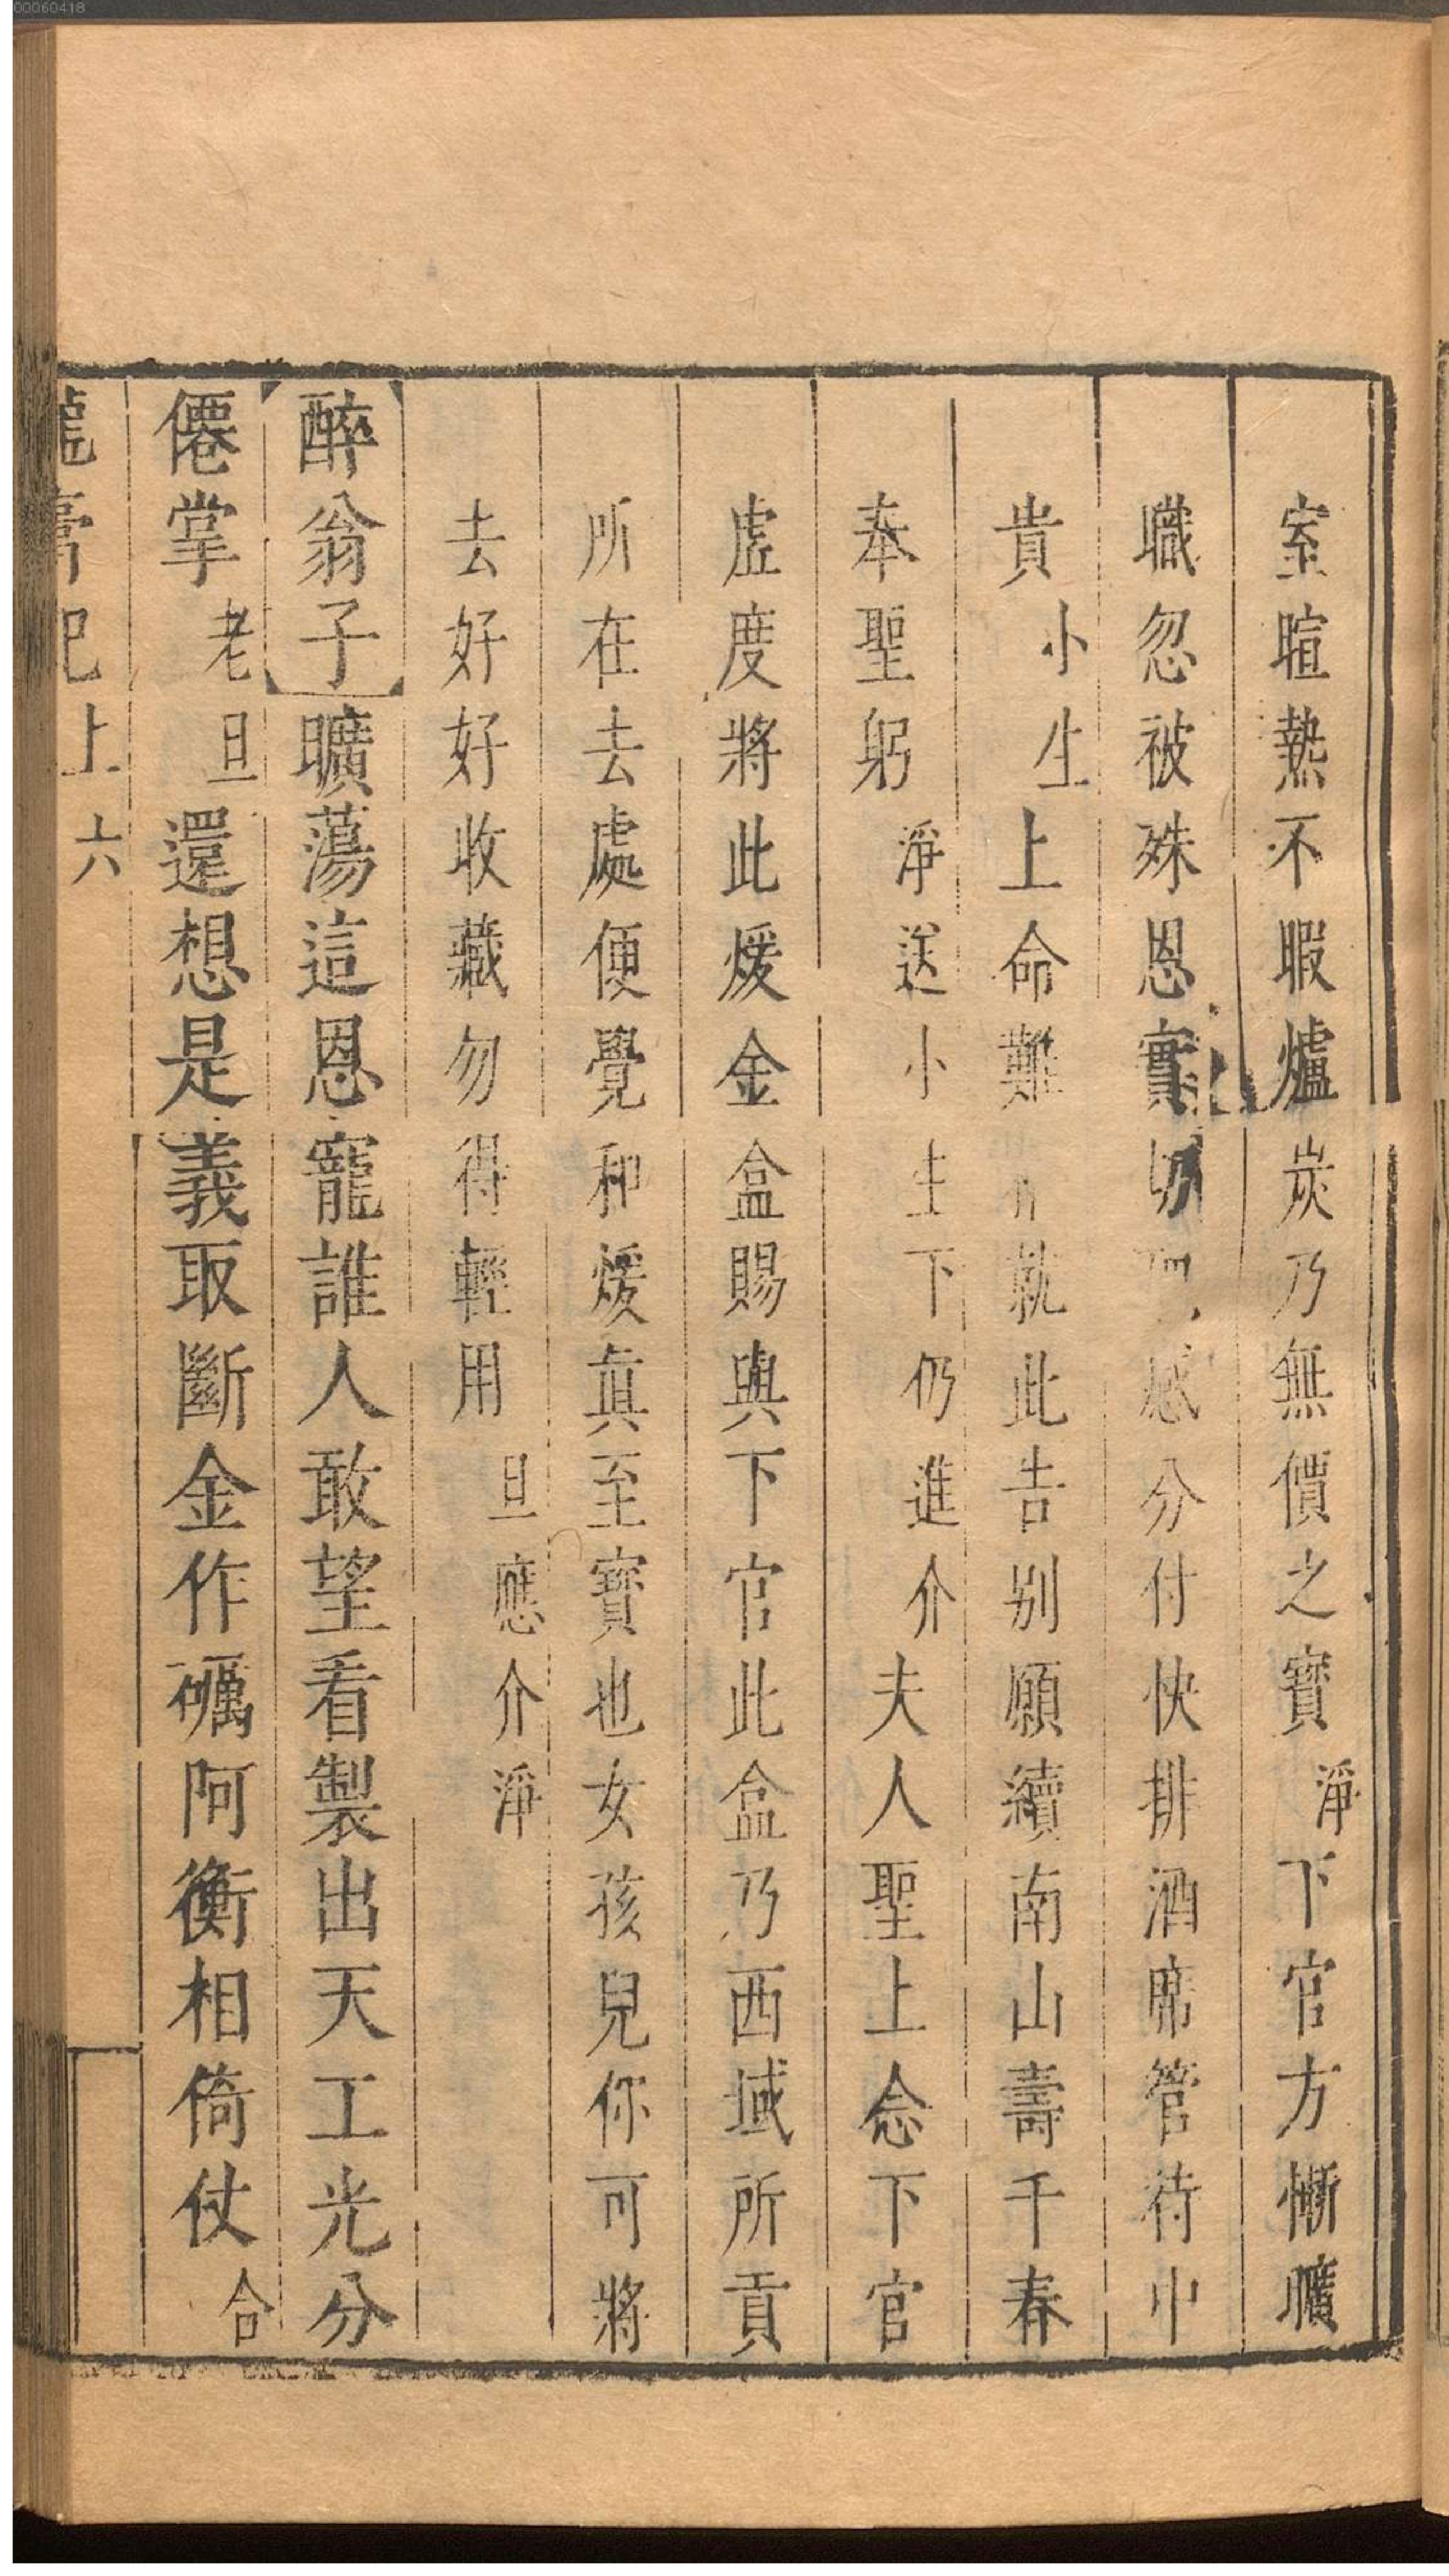 00060418
室暄熱不暇爐炭乃無價之寶淨下官方慚曠
職忽被殊恩實切感分付快排酒席管待中
貴小生上命難就此告別願續南山壽千春
奉聖躬淨送小生下仍進介夫人聖上念下官
虛度將此煖金盒賜與下官此盒乃西域所貢
所在去處便覺和煖眞至寶也女孩兒你可將
去好好收藏勿得輕用旦應介淨
醉翁子曠蕩這恩寵誰人敢望看製出天工光分
僊掌老旦還想是義取斷金作礪阿衡相倚仗合
龍膏記上六